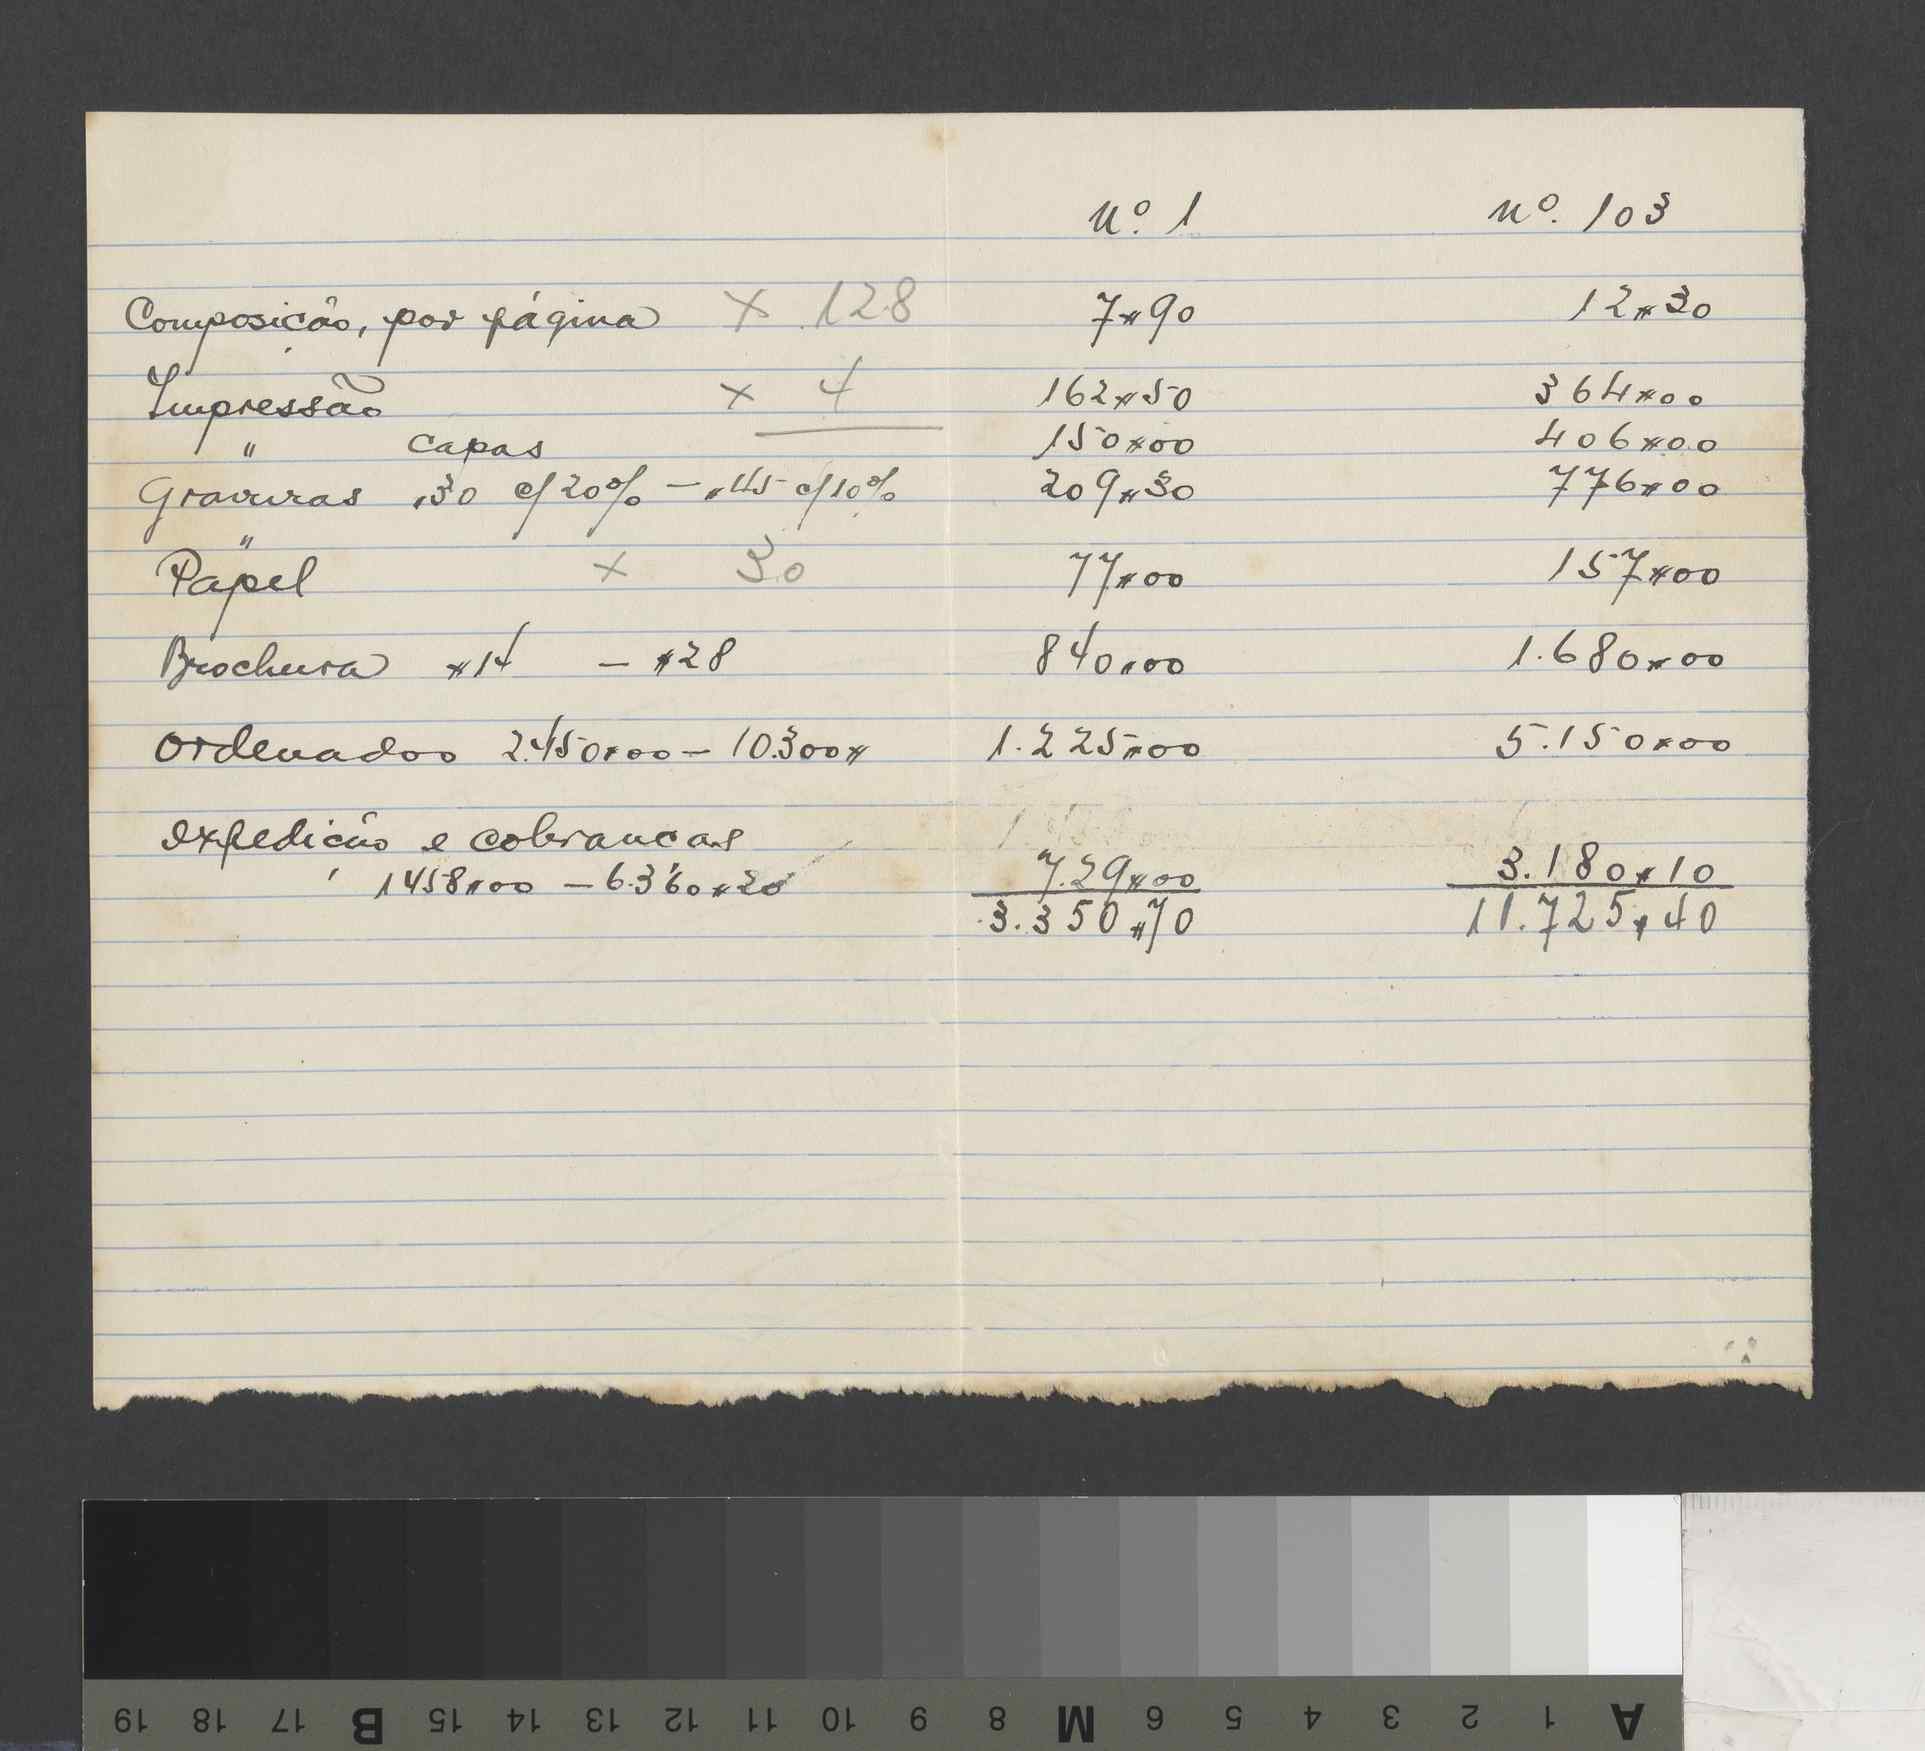 nº. 1 nº. 103
Composição, por página × 128 7$90 12$30
Impressão × 4 162$50 364$00
" capas 150$00 406$00
Gravuras $30 c/20% — $45 c/10% 209$30 776$00
"
Papel × 30 77$00 157$00
Brochura $14 — $28 840$00 1.680$00
Ordenados 2.450$00 — 10.300$ 1.225$00 5.150$00
Expedição e cobranças
1458$00 — 6.360$20 729$00 3.180$10
3.350$70 11.725$40
A 1 2 3 4 5 6 M 8 9 10 11 12 13 14 15 B 17 18 19